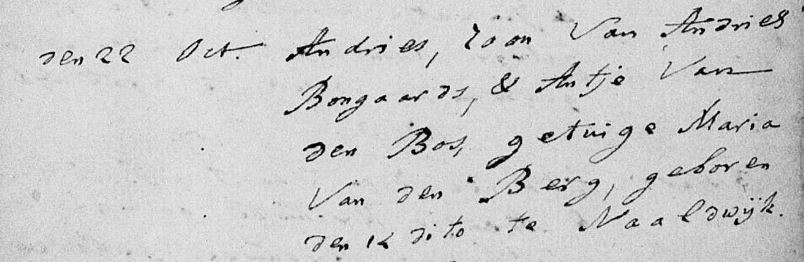 den 22 Oct. Andries, zoon Van Andries
Bongaards, & Antje Van
den Bos, getuige Maria
Van den Berg, geboren
den 12 dito te Naaldwijk.